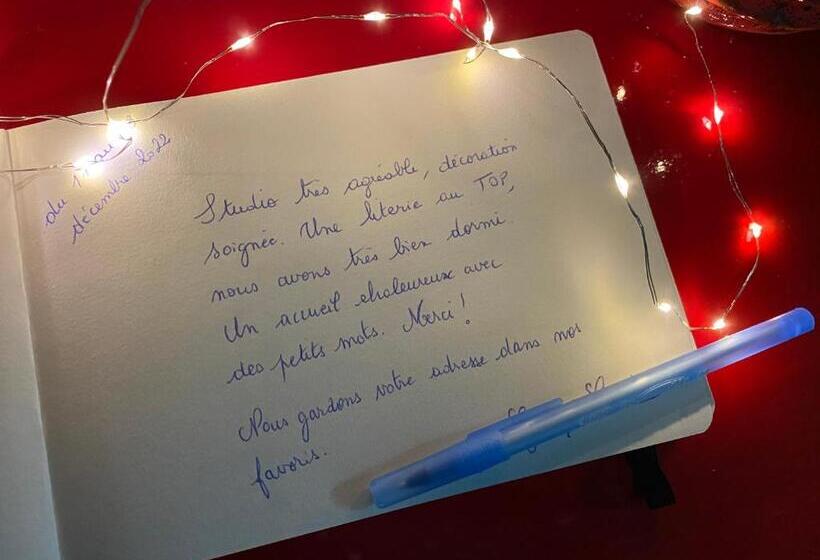 du 11 au
décembre 2022
Studio très agréable, décoration
soignée. Une literie au TOP,
nous avons très bien dormi.
Un accueil chaleureux avec
des petits mots. Merci !
Nous gardons votre adresse dans nos
favoris.